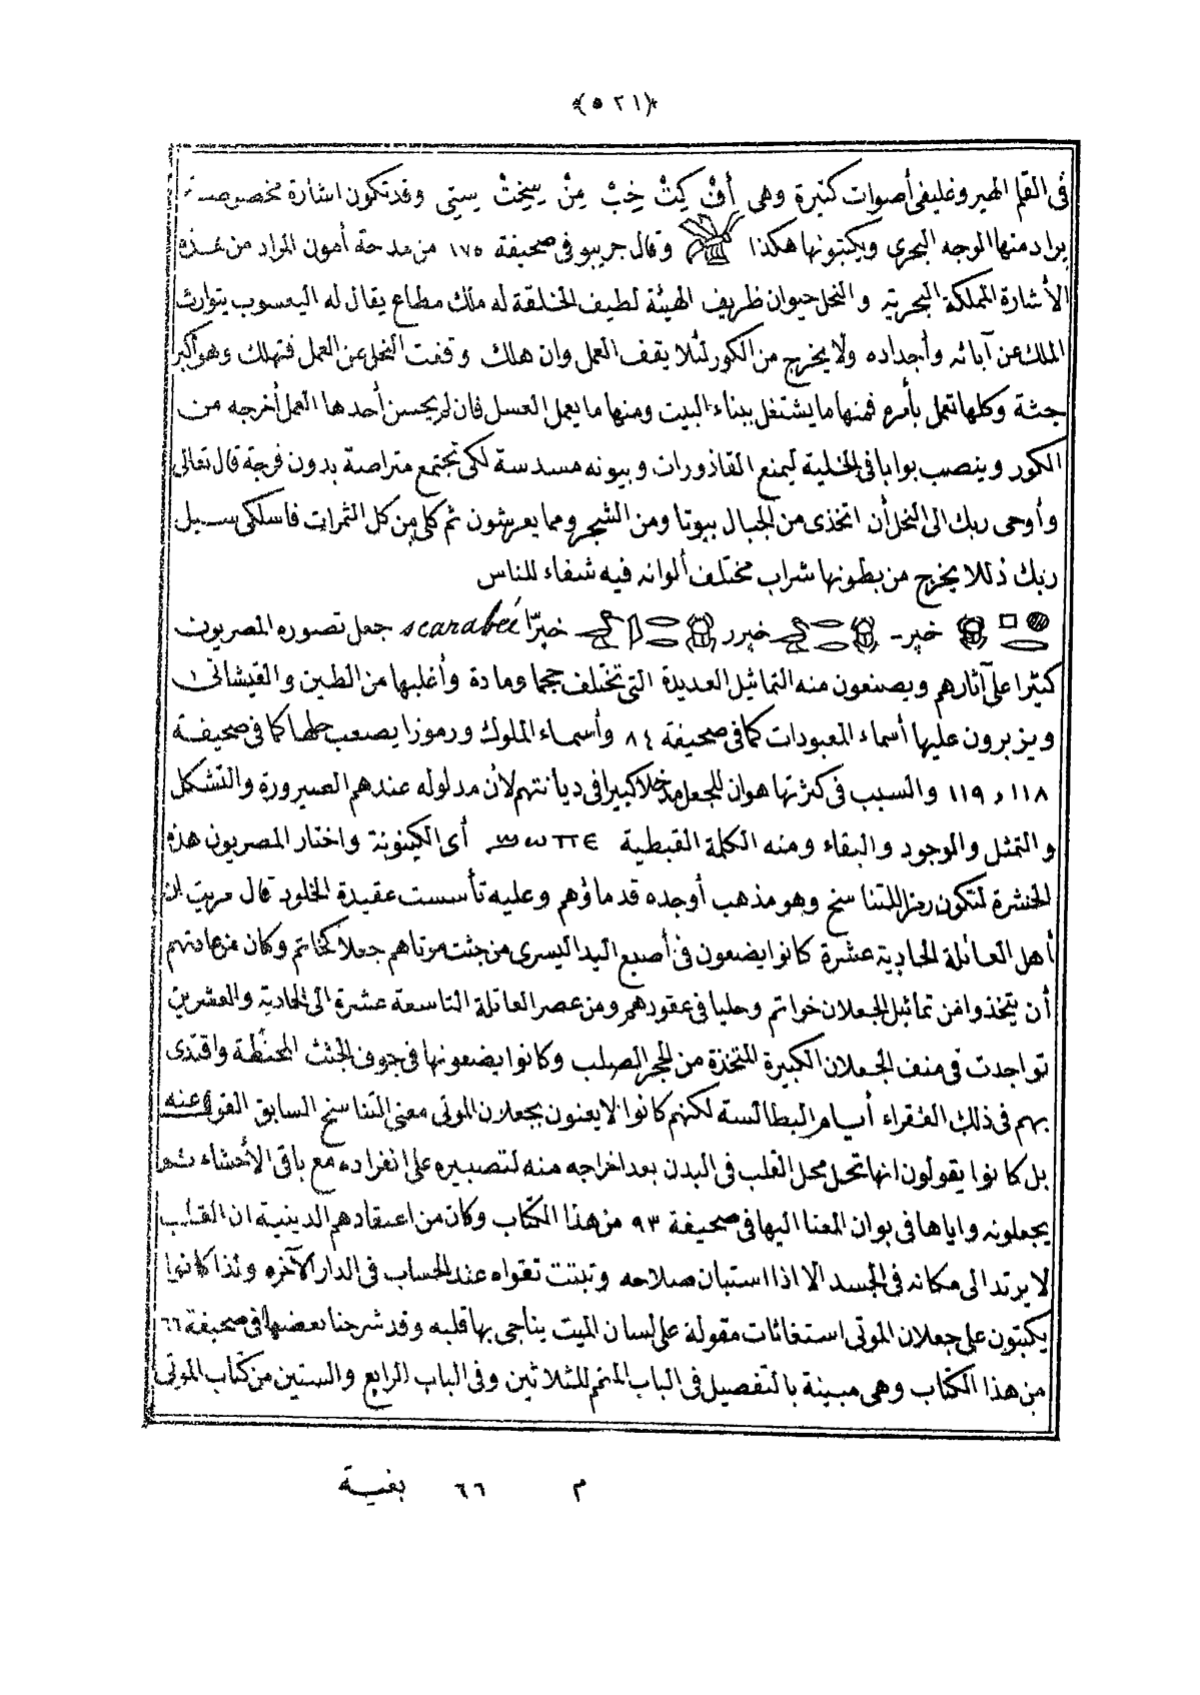 ﴿٥٢١﴾
فى القلم الهيروغليفى أصوات كثيرة وهى أَفْ كِتْ خِبْ مِنْ سِخِتْ سِتِى وقد تكون اشارة مخصوصة
يراد منها الوجه البحرى ويكتبونها هكذا وقال جريبو فى صحيفة ١٧٥ من مدحة أمون المراد من هذه
الأشارة المملكة البحرية والنحل حيوان ظريف الهيئة لطيف الخلقة له ملك مطاع يقال له اليعسوب يتوارث
الملك عن آبائه وأجداده ولا يخرج من الكور لئلا يقف العمل وان هلك وقفت النحل عن العمل فتهلك وهو أكبر
جثة وكلها تعمل بأمره فمنها ما يشتغل ببناء البيت ومنها ما يعمل العسل فان لم يحسن أحدها العمل أخرجه من
الكور وينصب بوابا فى الخلية ليمنع القاذورات وبيوته مسدسة لكى تجتمع متراصة بدون فرجة قال تعالى
وأوحى ربك الى النحل أن اتخذى من الجبال بيوتا ومن الشجر ومما يعرشون ثم كلى من كل الثمرات فاسلكى سبل
ربك ذللا يخرج من بطونها شراب مختلف ألوانه فيه شفاء للناس
خپر - خپرر خپرّا scarabée جعل تصوره المصريون
كثيرا على آثارهم ويصنعون منه التماثيل العديدة التى تختلف حجما ومادة وأغلبها من الطين والقيشانى
ويزبرون عليها أسماء المعبودات كما فى صحيفة ٨٤ وأسماء الملوك ورموزا يصعب حلها كما فى صحيفة
١١٨ و ١١٩ والسبب فى كثرتها هو ان للجعل مدخلا كبيرا فى ديانتهم لأن مدلوله عندهم الصيرورة والتشكل
والتمثل والوجود والبقاء ومنه الكلمة القبطية أى الكينونة واختار المصريون هذه
الحشرة لتكون رمزا للتناسخ وهو مذهب أوجده قدماؤهم وعليه تأسست عقيدة الخلود قال مريت ان
أهل العائلة الحادية عشرة كانوا يضعون فى أصبع اليد اليسرى من جثث موتاهم جعلا كخاتم وكان من عادتهم
أن يتخذوا من تماثيل الجعلان خواتم وحليا فى عقودهم ومن عصر العائلة التاسعة عشرة الى الحادية والعشرين
تواجدت فى منف الجعلان الكبيرة المتخذة من الحجر الصلب وكانوا يضعونها فى جوف الجثث المحنطة واقتدى
بهم فى ذلك الفقراء أيام البطالسة لكنهم كانوا لا يعنون بجعلان الموتى معنى التناسخ السابق عنه
بل كانوا يقولون انها تحل محل القلب فى البدن بعد اخراجه منه لتصبيره على انفراده مع باقى الأحشاء ثم
يجعلونه واياها فى بوان المعنا اليها فى صحيفة ٩٣ من هذا الكتاب وكان من اعتقادهم الدينية ان القلب
لا يرتد الى مكانه فى الجسد الا اذا استبان صلاحه وثبتت تقواه عند الحساب فى الدار الآخره ولذا كانوا
يكتبون على جعلان الموتى استغاثات مقولة على لسان الميت يناجى بها قلبه وقد شرحنا بعضها فى صحيفة
من هذا الكتاب وهى مبينة بالتفصيل فى الباب المتمم للثلاثين وفى الباب الرابع والستين من كتاب الموتى
م ٦٦ بغية